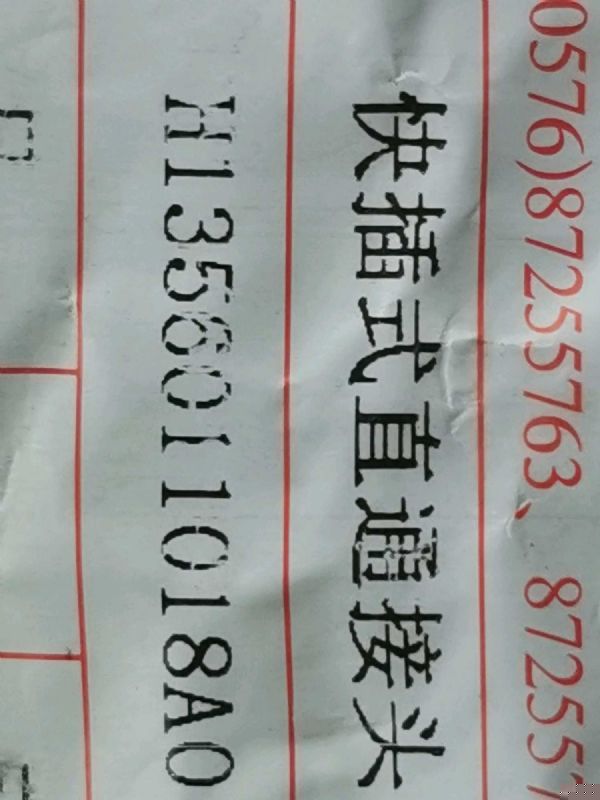 0576)87255763、 872557
快插式直通接头
H1356011018A0